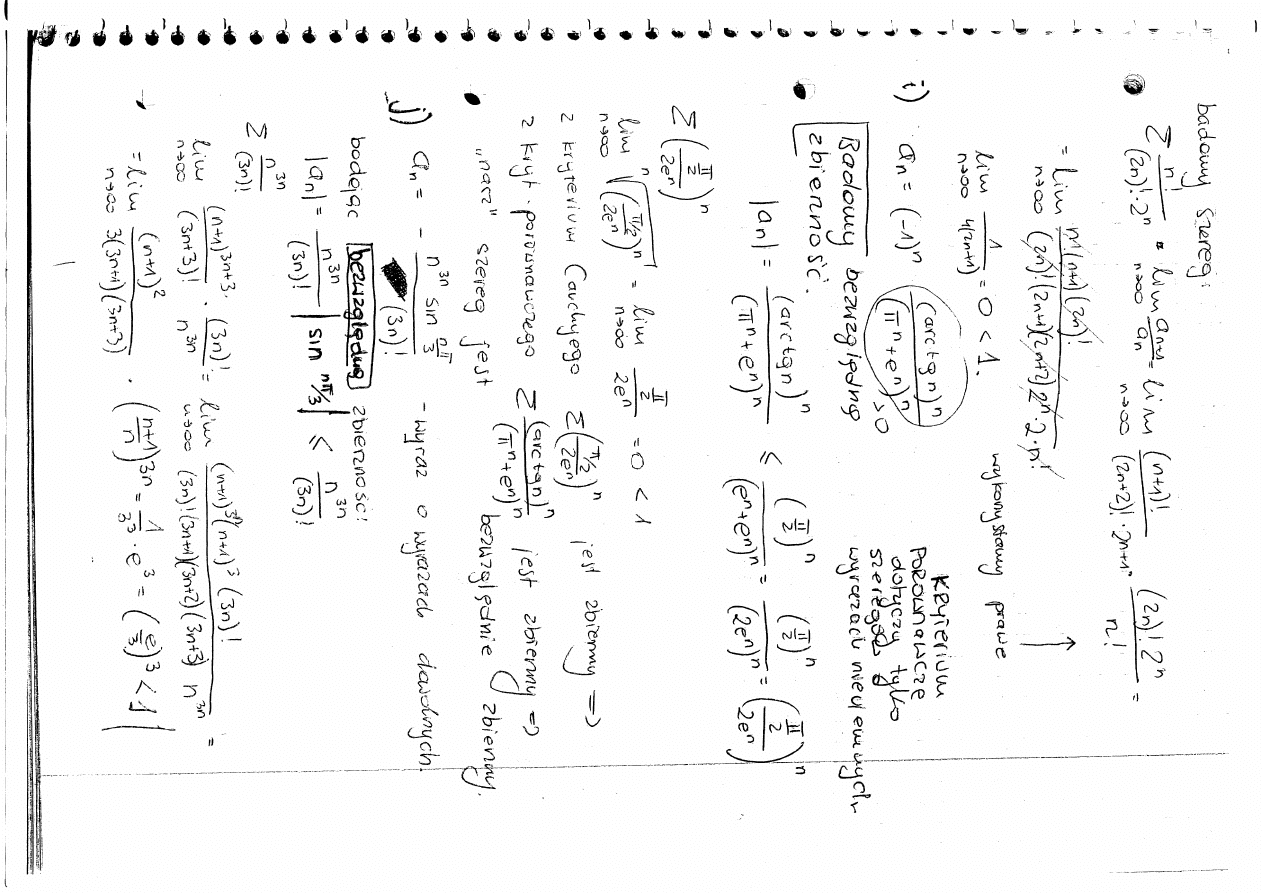 badamy szereg:
Σ n!/((2n)!·2^n) = lim_{n→∞} a_{n+1}/a_n = lim_{n→∞} (n+1)!/((2n+2)!·2^{n+1}) · (2n)! 2^n/n! =
= lim_{n→∞} n!(n+1)(2n)!/((2n)!(2n+1)(2n+2) 2^n·2·n!)
lim_{n→∞} 1/(4(2n+1)) = 0 < 1.
wykorzystamy prawe
i) a_n = (-1)^n (arctg n)^n/(π^n + e^n)^n ≥ 0
KRYTERIUM
POROWNAWCZE
dotyczy tylko
szeregów o
wyrazach nieujemnych
Badamy bezwzględną
zbieżność.
|a_n| = (arctg n)^n/(π^n + e^n)^n ≤ (π/2)^n/(e^n + e^n)^n = (π/2)^n/(2e^n)^n = ((π/2)/(2e^n))^n
Σ ((π/2)/(2e^n))^n
lim_{n→∞} ⁿ√(((π/2)/(2e^n))^n) = lim_{n→∞} (π/2)/(2e^n) = 0 < 1
z kryterium Cauchyego Σ ((π/2)/(2e^n))^n jest zbieżny =>
z kryt. porównawczego Σ (arctg n)^n/(π^n + e^n)^n jest zbieżny =>
„nasz" szereg jest bezwzględnie zbieżny.
j) a_n = - n^{3n} sin(nπ/3)/(3n)! - wyraz o wyrazach dowolnych.
badając bezwzględną zbieżność:
|a_n| = n^{3n}/(3n)! |sin nπ/3| ≤ n^{3n}/(3n)!
Σ n^{3n}/(3n)!
lim_{n→∞} (n+1)^{3n+3}/(3n+3)! · (3n)!/n^{3n} = lim_{n→∞} (n+1)^{3n}(n+1)^3 (3n)!/((3n)!(3n+1)(3n+2)(3n+3) n^{3n}) =
= lim_{n→∞} (n+1)^2/(3(3n+1)(3n+3)) · ((n+1)/n)^{3n} = 1/3^3 · e^3 = (e/3)^3 < 1